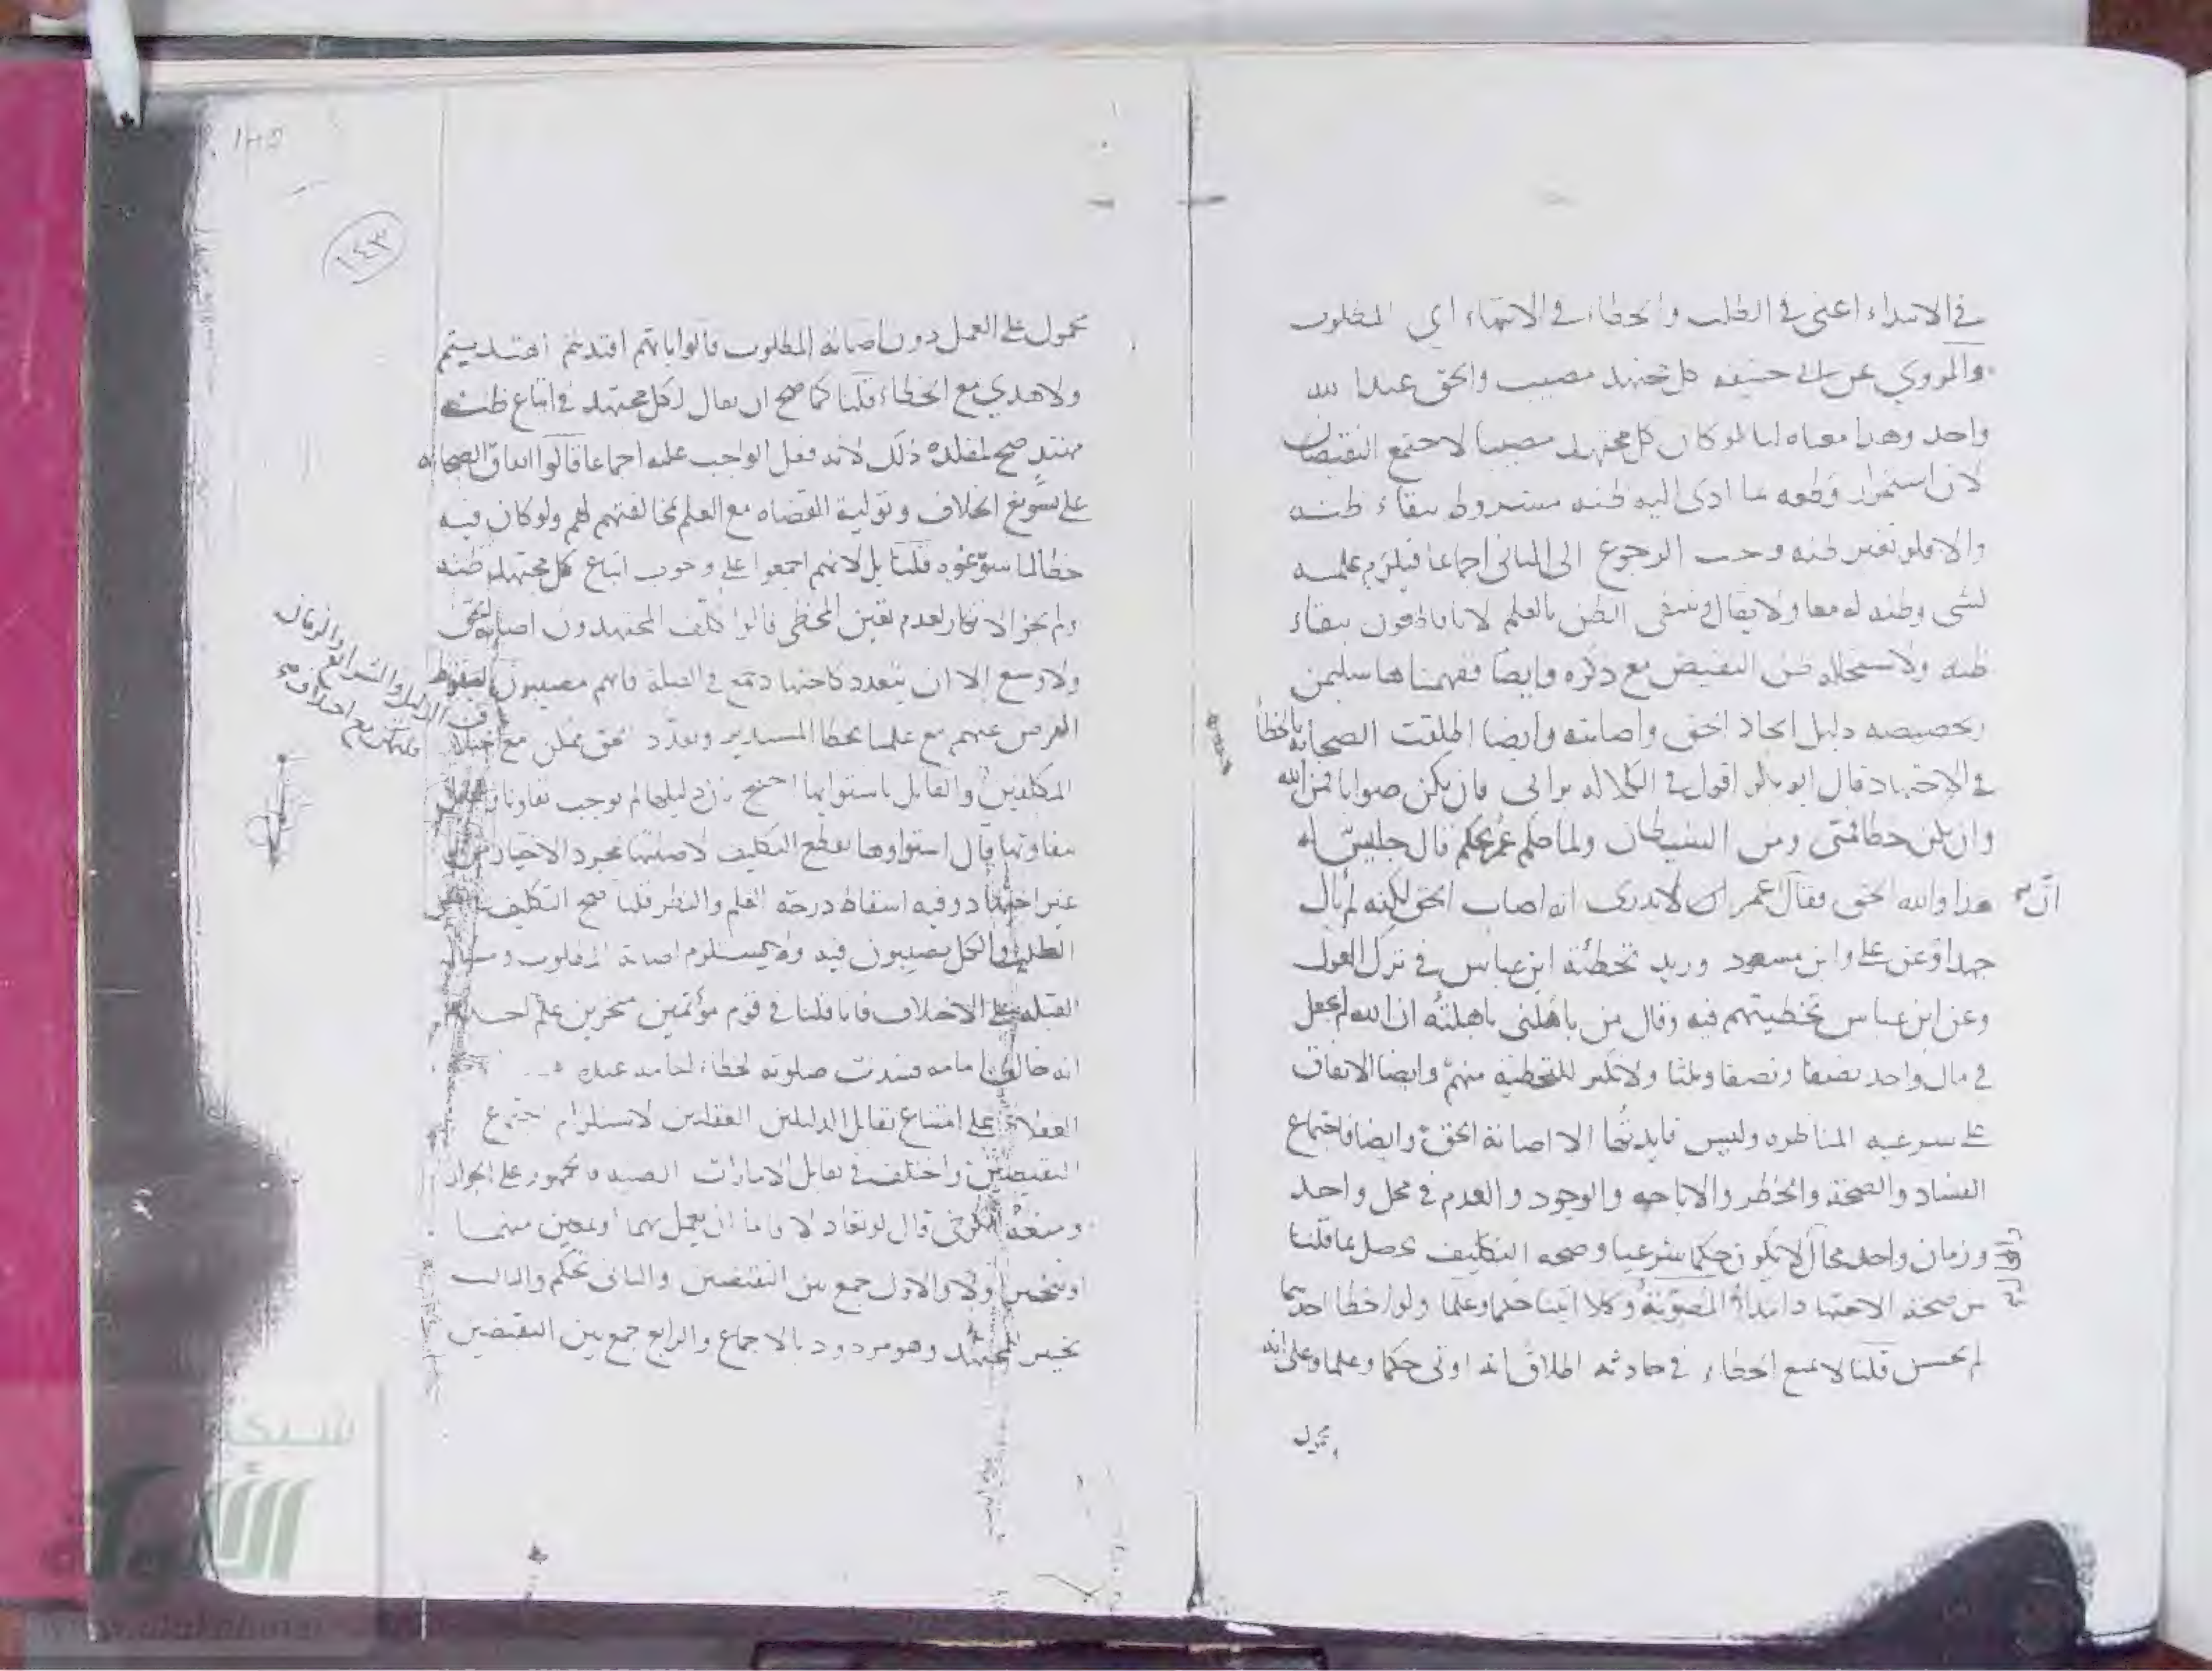 في الابتداء اعنى في الطلب والخطاء في الانتهاء اي المطلوب
والمروي عن ابي حنيفه كل مجتهد مصيب والحق عند الله
واحد وهذا معناه لنا لو كان كل مجتهد مصيبا لاجتمع النقيضان
لان استمرار قطعه بما ادى اليه ظنه مشروط ببقاء ظنه
والا فلو تغير ظنه وجب الرجوع الى الثاني اجماعا فيلزم علمه
لشى وظنه له معا ولا يقال ينتفى الظن بالعلم لانا قاطعون ببقاء
ظنه ولاستحاله ظن النقيض مع ذكره وايضا ففهمناها سليمن
وتخصيصه دليل اتحاد الحق واصابته وايضا اطلقت الصحابه بالخطأ
في الاجتهاد قال ابو بكر اقول في الكلاله برائى فان يكن صوابا فمن الله
وان يكن خطا فمنى ومن الشيطان ولما حكم عمر بحكم قال جليس له
هذا والله الحق فقال عمر ان لا يدرى انه اصاب الحق لكنه لم يأل
انّ
جهدا وعن على وابن مسعود وزيد تخطئة ابن عباس في ترك العول
وعن ابن عباس تخطيتهم فيه وقال من باهلنى باهلته ان الله لم يجعل
في مال واحد نصفا ونصفا وثلثا ولا نكير للتخطية منهم وايضا الاتفاق
على شرعيه المناظره وليس فايدتها الا اصابة الحق وايضا فاجتماع
الفساد والصحة والحظر والاباحه والوجود والعدم في محل واحد
وزمان واحد محال لا يكون حكما شرعيا وصحه التكليف تحصل بما قلنا
من صحة الاجتهاد ابتداء المصوبة وكلا اتينا حكما وعلما ولو اخطا احدهما
قالت
لم يحسن قلنا لا يمنع الخطاء في حادثه اطلاق انه اوتى حكما وعلما وعلى انه
محمول
١٤٣
محمول على العمل دون اصابه المطلوب قالوا بايهم اقتديتم اهتديتم
ولا هدي مع الخطاء قلنا كما صح ان يقال لكل مجتهد في اتباع ظنه
مهتد صح لمقلده ذلك لانه فعل الواجب عليه اجماعا قالوا اتفاق الصحابه
على تسويغ الخلاف وتولية القضاه مع العلم بمخالفتهم لهم ولو كان فيه
خطا لما سوغوه قلنا بل لانهم اجمعوا على وجوب اتباع كل مجتهد ظنه
ولم يجز الانكار لعدم تعين المخطى قالوا كلف المجتهدون اصابه الحق
ولا وسع الا ان يتعدد كاجتهادهم في القبلة فانهم مصيبون لسقوط
الفرض عنهم مع علمنا بخطا المستدبر وتعدد الحق ممكن مع اختلاف
المكلفين والقايل باستوايها احتج بان دليلها لم يوجب تفاوتا والقايل
بتفاوتها قال استواوها يقطع التكليف لاصابتها بمجرد الاختيار من
غير اجتهاد وفيه اسقاط درجة العلم والنظر قلنا صح التكليف
الطلب والكل مصيبون فيه ولا يستلزم اصابة المطلوب ومساله
القبله على الاختلاف فانا قلنا في قوم مؤتمين متحرين علم احدهم
انه خالف امامه فسدت صلوته لخطاء امامه عنده
العقلاء على امتناع تقابل الدليلين العقليين لاستلزام اجتماع
النقيضين واختلف في تقابل الامارات الجمهور على الجواز
ومنعه الكرخى قال لو تعادلا فاما ان يعمل بهما او بمعين منهما
او يتخير او لا والاول جمع بين النقيضين والثانى تحكم والثالث
تخيير للمجتهد وهو مردود بالاجماع والرابع جمع بين النقيضين
شبكة
الألوكة